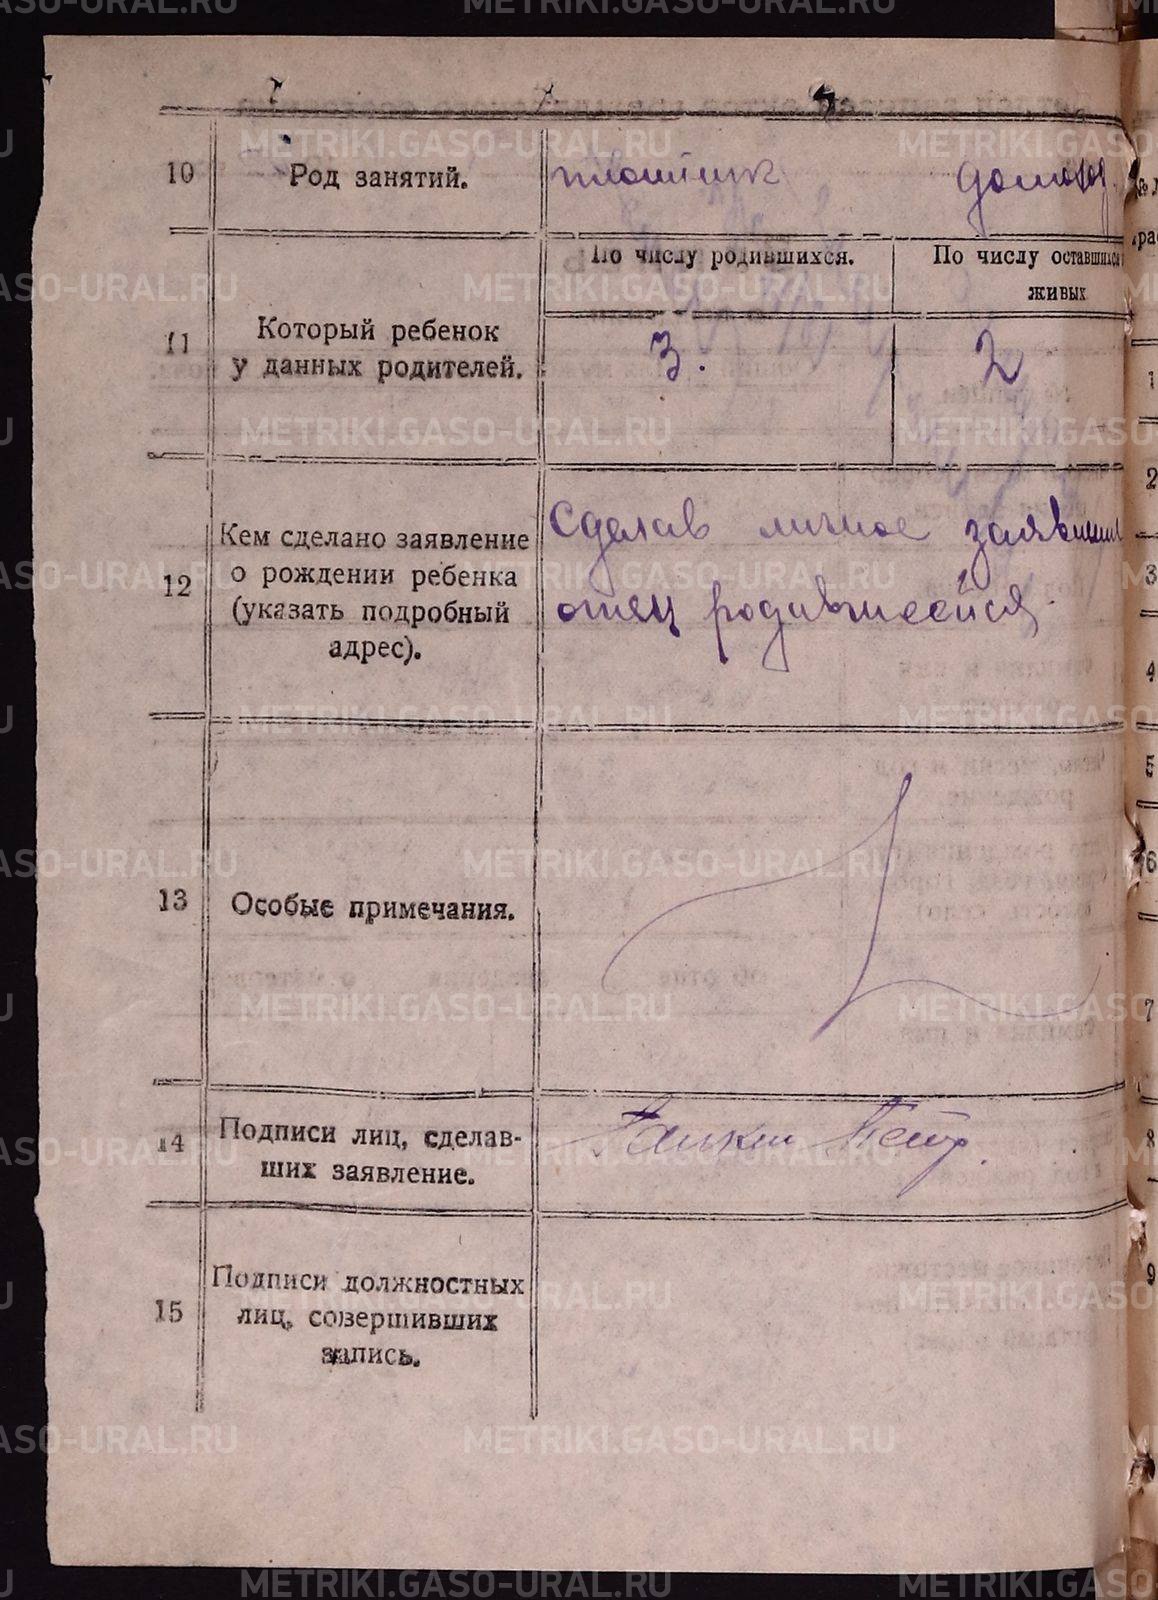 10 Род занятий. плотник домохоз.
По числу родившихся. По числу оставшихся
живых
11 Который ребенок
у данных родителей. 3. 2
12 Кем сделано заявление
о рождении ребенка
(указать подробный
адрес).
Сделав личное
отец родившейся.
13 Особые примечания.
14 Подписи лиц, сделав-
ших заявление.
Петр.
15 Подписи должностных
лиц, совершивших
запись.
METRIKI.GASO-URAL.RU